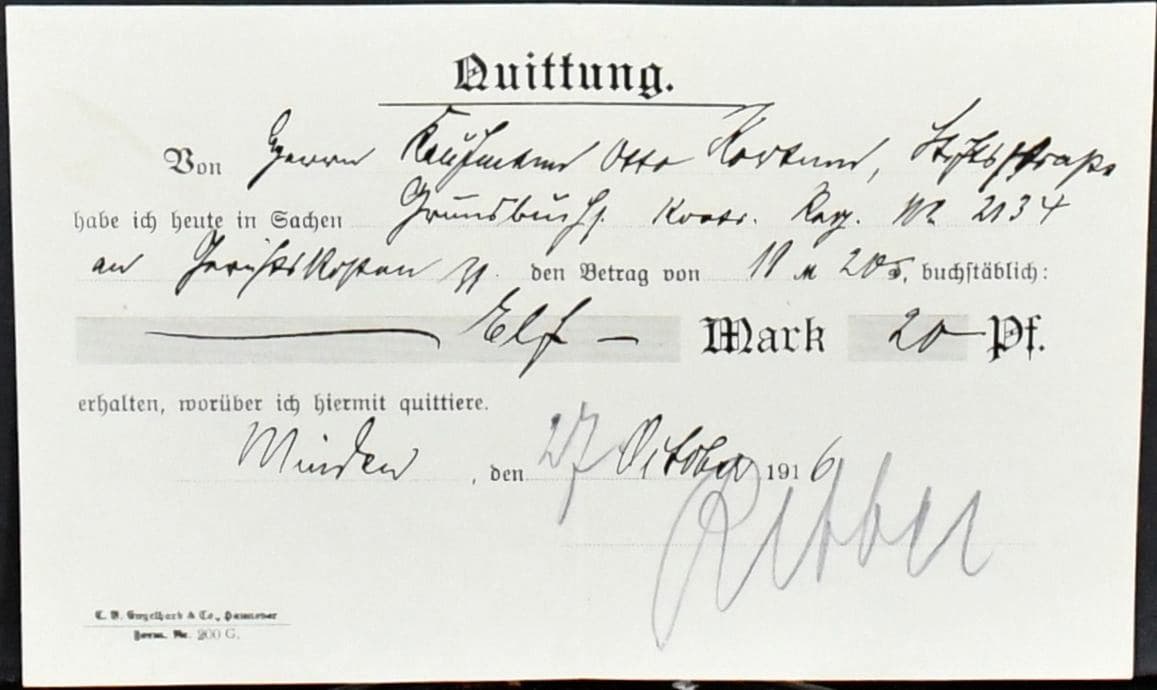 Quittung.
Von Herrn Kaufmann Otto Kortum, Stiftsstraße
habe ich heute in Sachen Grundbuchs. Kontr. Reg. No 2134
an Gerichtskosten pp. den Betrag von 11 M 20 Pf, buchstäblich:
Elf — Mark 20 Pf.
erhalten, worüber ich hiermit quittiere.
Minden, den 27 October 1916
C. V. Engelhard & Co., Hannover
Form. Nr. 200 G.